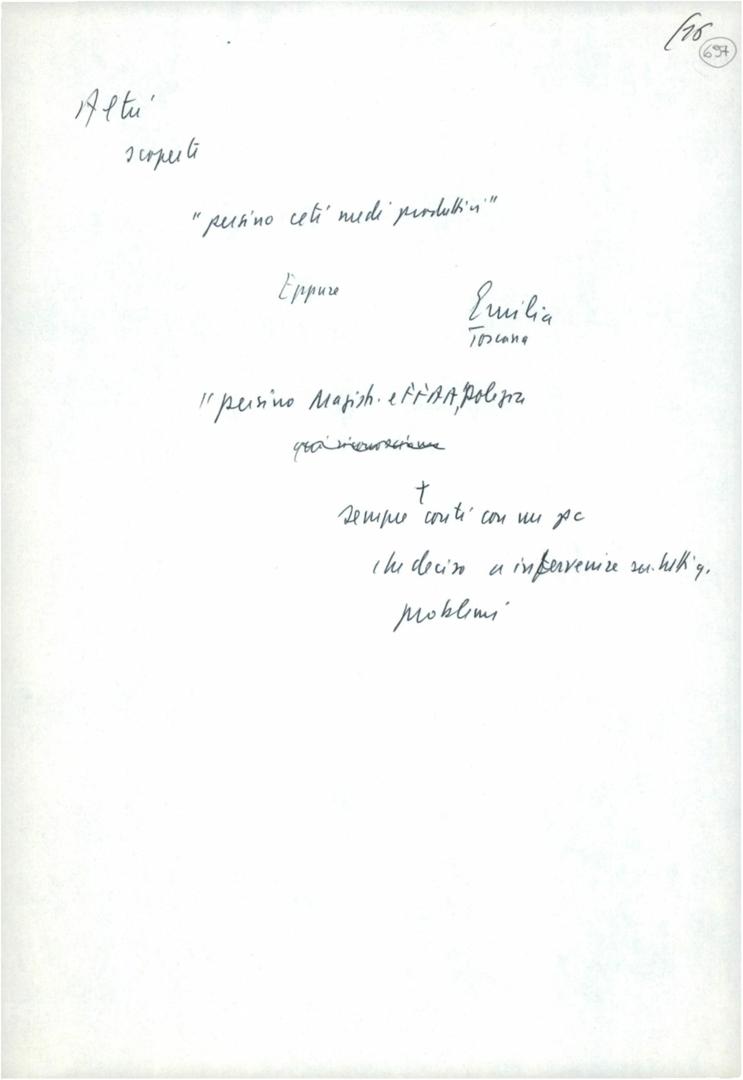 (16
697
Altri
scoperti
"persino ceti medi produttivi"
Eppure
Emilia
Toscana
"persino Magistr. e FFAA, Polizia
+
sempre conti con un pc
che deciso a intervenire su tutti q.
problemi